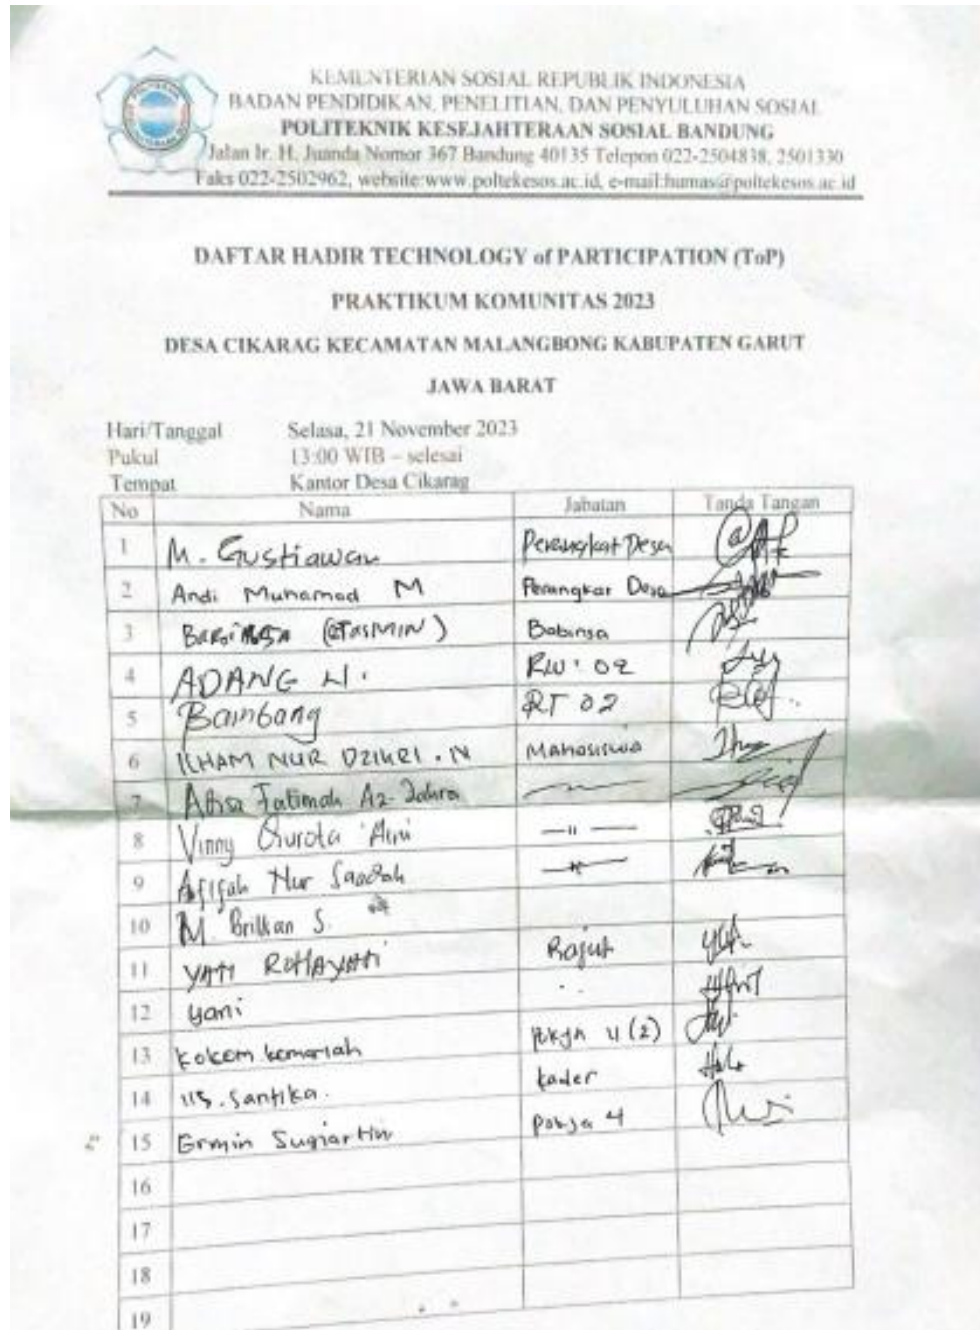 KEMENTERIAN SOSIAL REPUBLIK INDONESIA
BADAN PENDIDIKAN, PENELITIAN, DAN PENYULUHAN SOSIAL
POLITEKNIK KESEJAHTERAAN SOSIAL BANDUNG
Jalan Ir. H. Juanda Nomor 367 Bandung 40135 Telepon 022-2504838, 2501330
Faks 022-2502962, website:www.poltekesos.ac.id, e-mail:humas@poltekesos.ac.id
DAFTAR HADIR TECHNOLOGY of PARTICIPATION (ToP)
PRAKTIKUM KOMUNITAS 2023
DESA CIKARAG KECAMATAN MALANGBONG KABUPATEN GARUT
JAWA BARAT
Hari/Tanggal Selasa, 21 November 2023
Pukul 13:00 WIB – selesai
Tempat Kantor Desa Cikarag
No Nama Jabatan Tanda Tangan
1 M. Gustiawan Perangkat Desa
2 Andi Muhamad M Perangkat Desa
3 (TASMIN) Babinsa
4 ADANG H. RW : 02
5 Bambang RT 02
6 ILHAM NUR DZIKRI . N Mahasiswa
7 Fatimah Az-Zahra
8 Vinny Qurota 'Aini —11—
9 Afifah Nur Saadah
10 M. Brilkan S.
11 YATI ROHAYATI Rajut
12 yani
13 kokom komariah (2)
14 santika. kader
15 Ermin Sugiartin Pokja 4
16
17
18
19